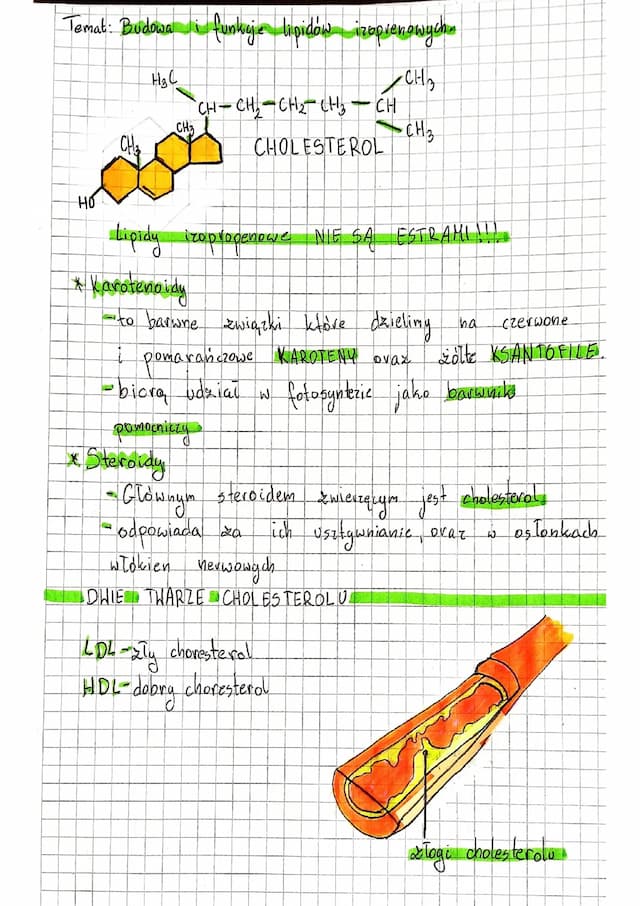 Temat: Budowa i funkcje lipidów izoprenowych
H3C
CH3
CH-CH2-CH2-CH3-CH
CH3
CH3
CH3
CHOLESTEROL
HO
Lipidy izopropenowe NIE SĄ ESTRAMI!!!
* Karotenoidy
-to barwne związki które dzielimy na czerwone
i pomarańczowe KAROTENY oraz żółte KSANTOFILE.
-biorą udział w fotosyntezie jako barwniki
pomocniczy
* Steroidy
- Głównym steroidem zwierzęcym jest cholesterol
-odpowiada za ich usztywnianie, oraz w osłonkach
włókien nerwowych
DWIE TWARZE CHOLESTEROLU
LDL-zły choresterol
HDL-dobry choresterol
złogi cholesterolu